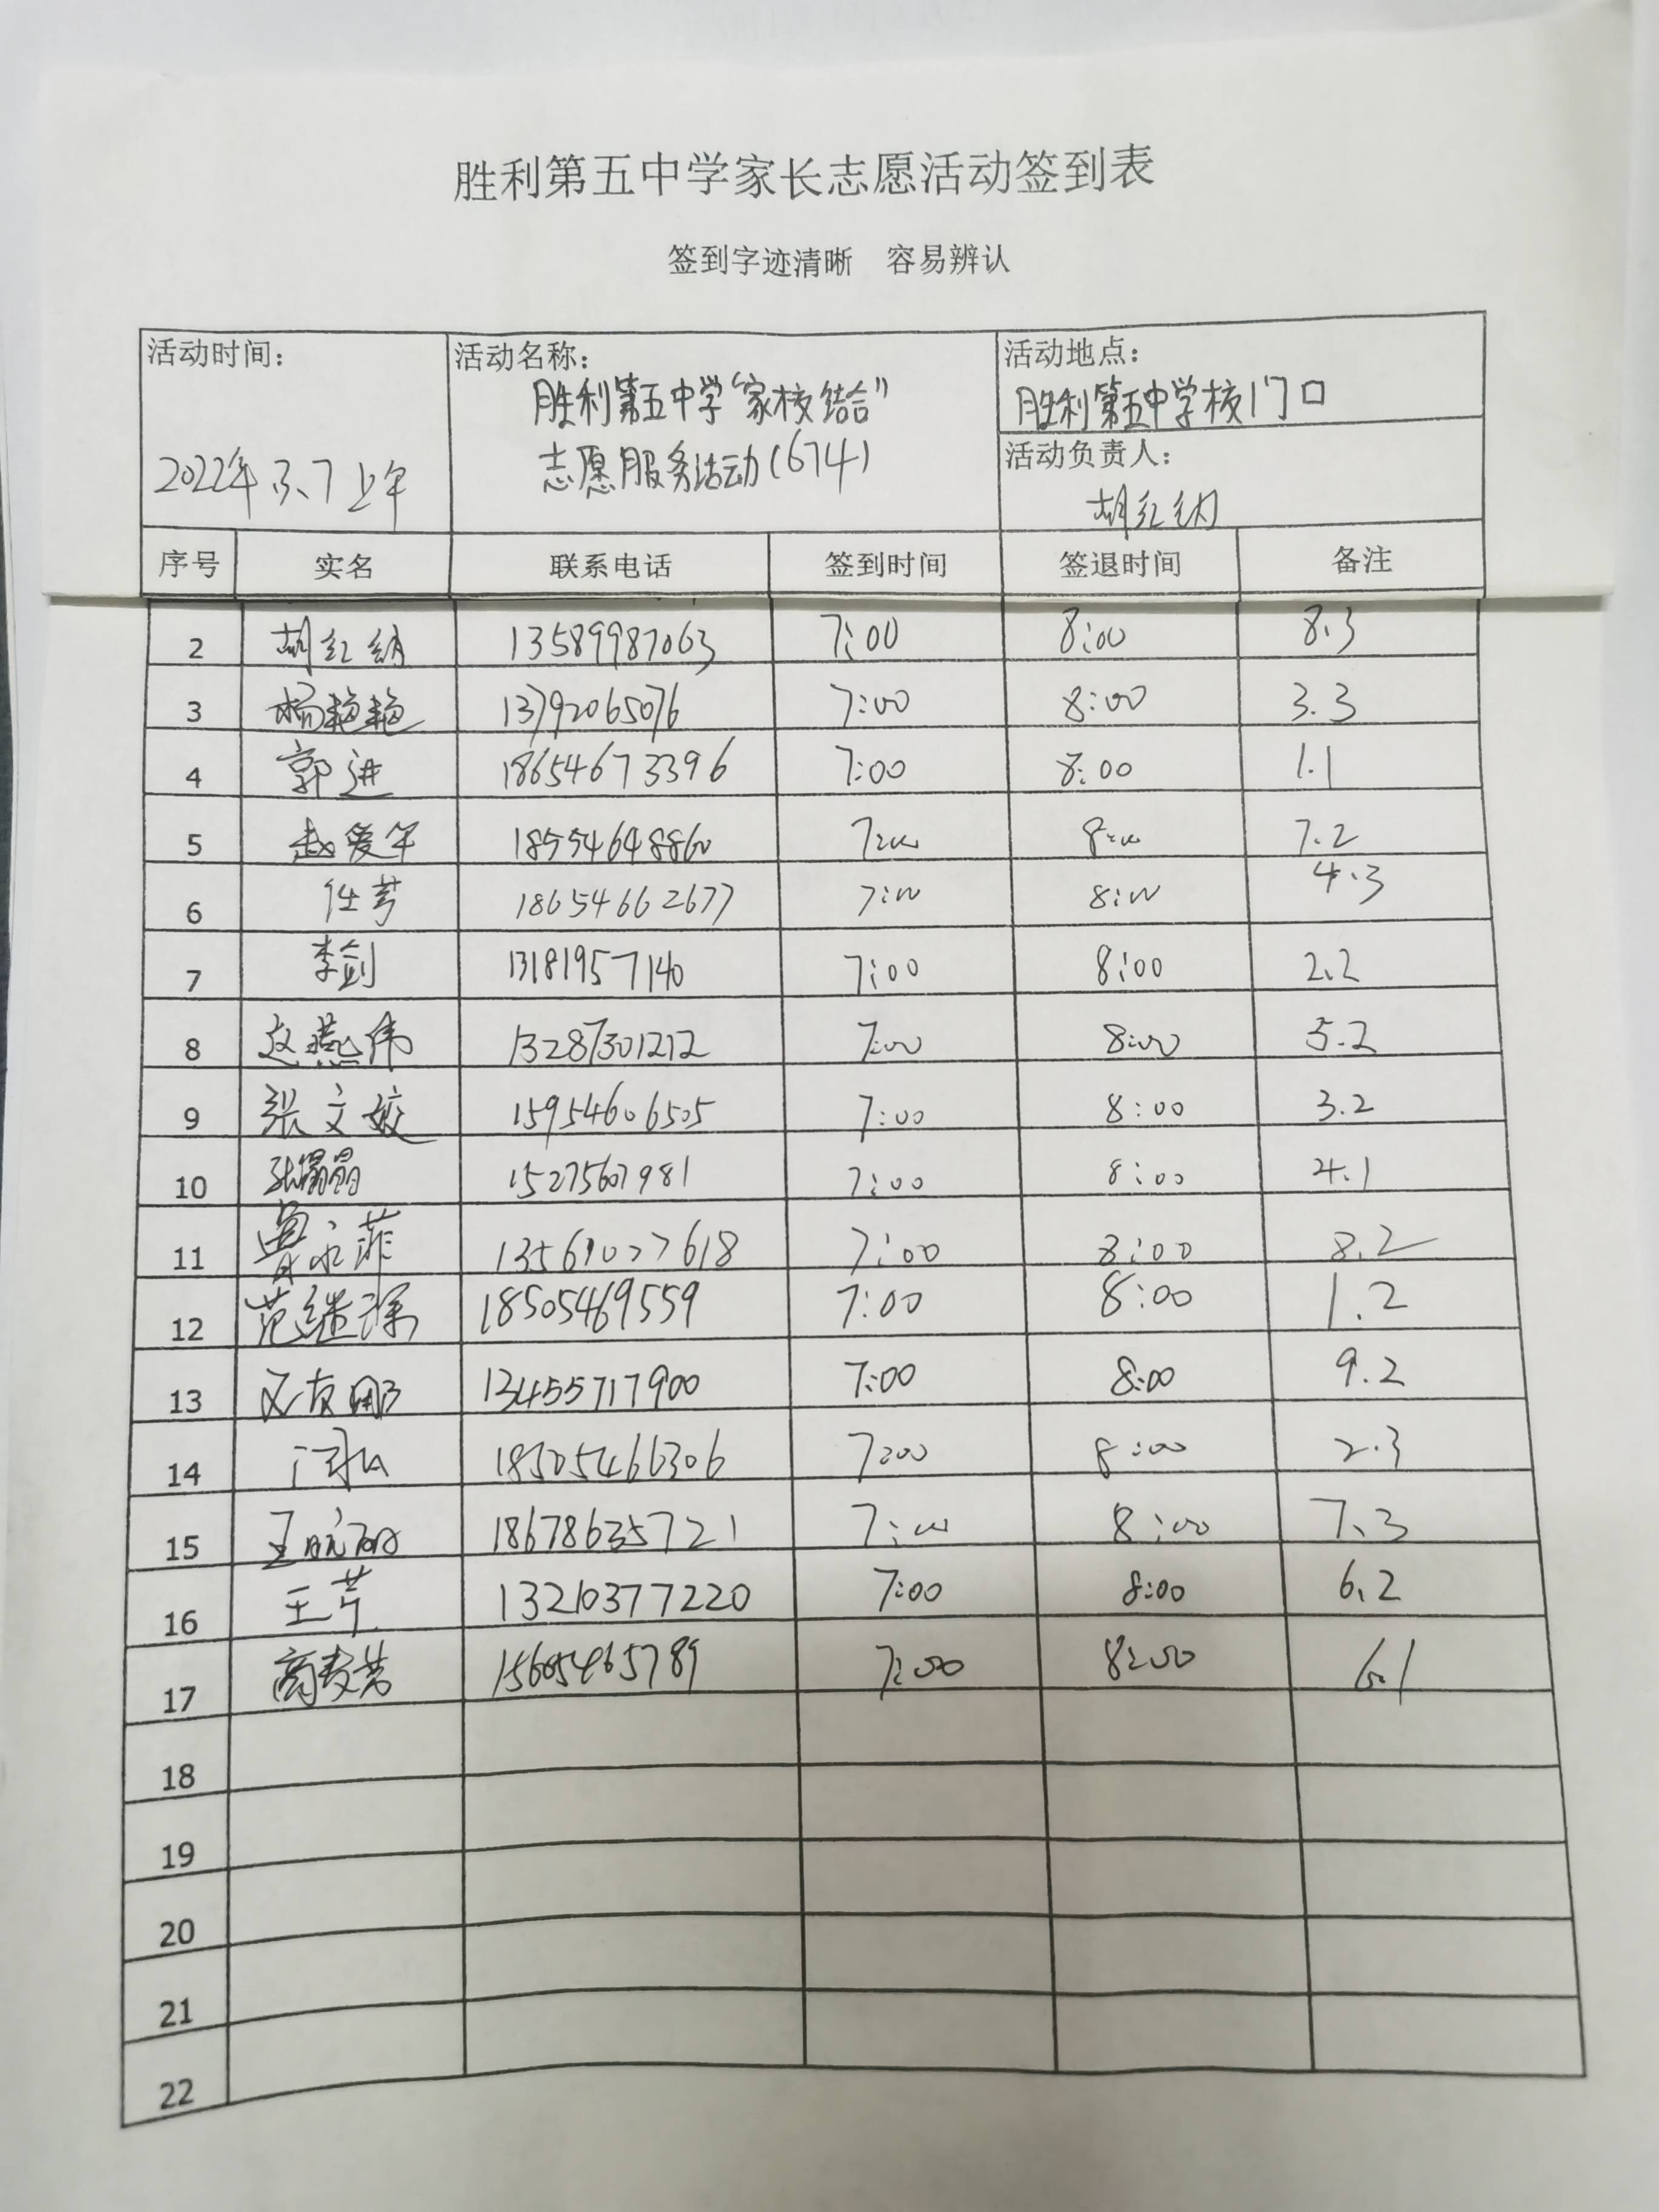 胜利第五中学家长志愿活动签到表
签到字迹清晰 容易辨认
活动时间: 2022年3.7上午
活动名称: 胜利第五中学“家校结合”
志愿服务活动(674)
活动地点: 胜利第五中学校门口
活动负责人: 胡红纳
序号 实名 联系电话 签到时间 签退时间 备注
2 胡红纳 13589987063 7:00 8:00 8.3
3 杨艳艳 13792065076 7:00 8:00 3.3
4 郭进 18654673396 7:00 8:00 1.1
5 赵爱军 18554648860 7:00 8:00 7.2
6 任芳 18654662677 7:00 8:00 4.3
7 李剑 13181957140 7:00 8:00 2.2
8 赵燕伟 13287301212 7:00 8:00 5.2
9 张文姣 15954606505 7:00 8:00 3.2
10 15275607981 7:00 8:00 4.1
11 7:00 8:00 8.2
12 范继深 18505469559 7:00 8:00 1.2
13 13455717900 7:00 8:00 9.2
14 18505466306 7:00 8:00 2.3
15 18678635721 7:00 8:00 7.3
16 王芹 13210377220 7:00 8:00 6.2
17 15605465789 7:00 8:00 6.1
18
19
20
21
22